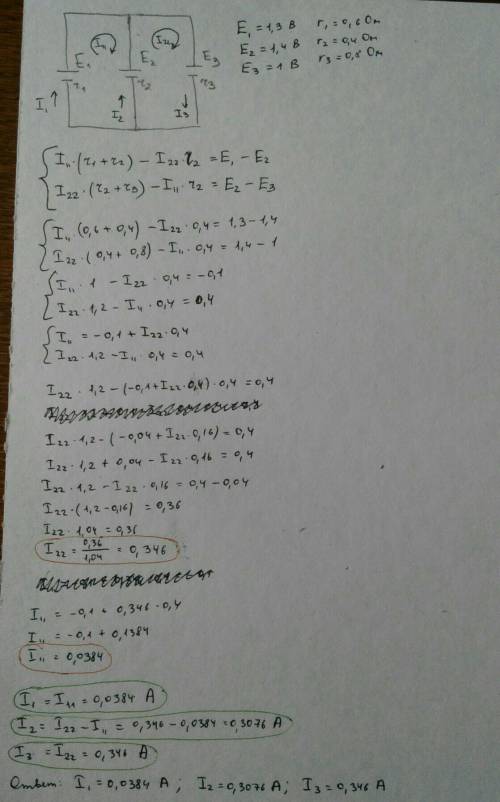 E₁ = 1,3 В r₁ = 0,6 Ом
E₂ = 1,4 В r₂ = 0,4 Ом
E₃ = 1 В r₃ = 0,8 Ом
I₁₁ I₂₂
E₁ E₂ E₃
r₁ r₂ r₃
I₁ I₂ I₃
I₁₁·(r₁+r₂) – I₂₂·r₂ = E₁ – E₂
I₂₂·(r₂+r₃) – I₁₁·r₂ = E₂ – E₃
I₁₁·(0,6+0,4) – I₂₂·0,4 = 1,3 – 1,4
I₂₂·(0,4+0,8) – I₁₁·0,4 = 1,4 – 1
I₁₁·1 – I₂₂·0,4 = –0,1
I₂₂·1,2 – I₁₁·0,4 = 0,4
I₁₁ = –0,1 + I₂₂·0,4
I₂₂·1,2 – I₁₁·0,4 = 0,4
I₂₂·1,2 – (–0,1+I₂₂·0,4)·0,4 = 0,4
I₂₂·1,2 – (–0,04 + I₂₂·0,16) = 0,4
I₂₂·1,2 + 0,04 – I₂₂·0,16 = 0,4
I₂₂·1,2 – I₂₂·0,16 = 0,4 – 0,04
I₂₂·(1,2–0,16) = 0,36
I₂₂·1,04 = 0,36
I₂₂ = 0,36/1,04 = 0,346
I₁₁ = –0,1 + 0,346·0,4
I₁₁ = –0,1 + 0,1384
I₁₁ = 0,0384
I₁ = I₁₁ = 0,0384 A
I₂ = I₂₂ – I₁₁ = 0,346 – 0,0384 = 0,3076 A
I₃ = I₂₂ = 0,346 A
Ответ: I₁ = 0,0384 A ; I₂ = 0,3076 A ; I₃ = 0,346 A